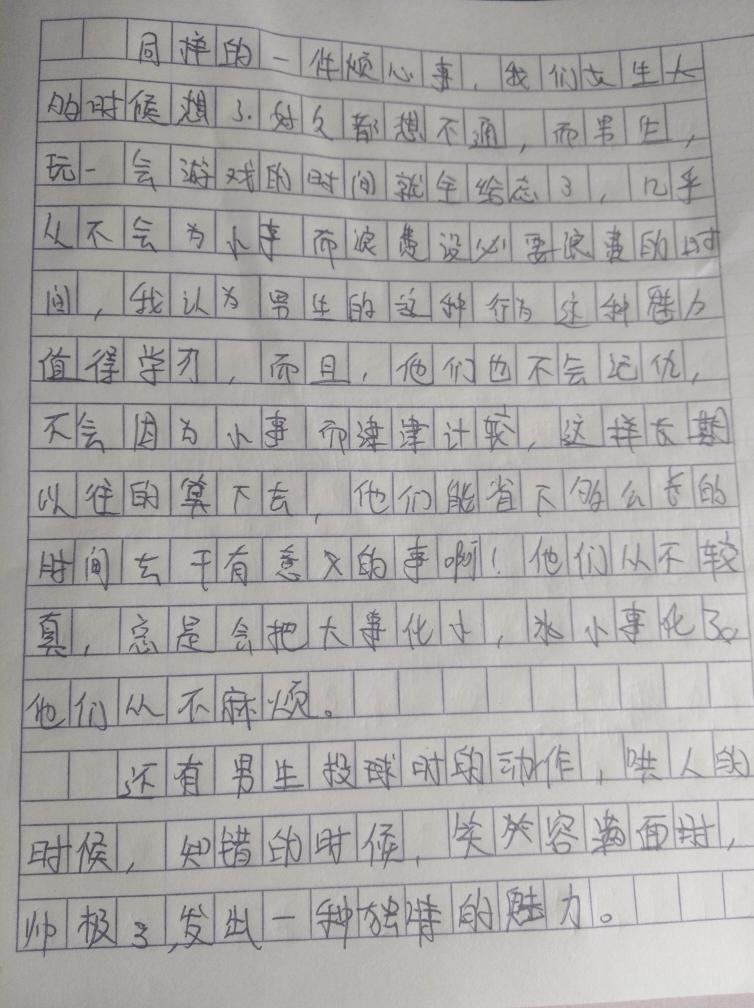 同样的一件烦心事，我们女生大
的时候想了好久都想不通，而男生，
玩一会游戏的时间就全给忘了，几乎
从不会为小事而浪费没必要浪费的时
间，我认为男生的这种行为这种魅力
值得学习，而且，他们也不会记仇，
不会因为小事而津津计较，这样长期
以往的算下去，他们能省下多么长的
时间去干有意义的事啊！他们从不较
真，总是会把大事化小，小事化了。
他们从不麻烦。
还有男生投球时的动作，哄人的
时候，知错的时候，笑容满面时，
帅极了，发出一种独特的魅力。